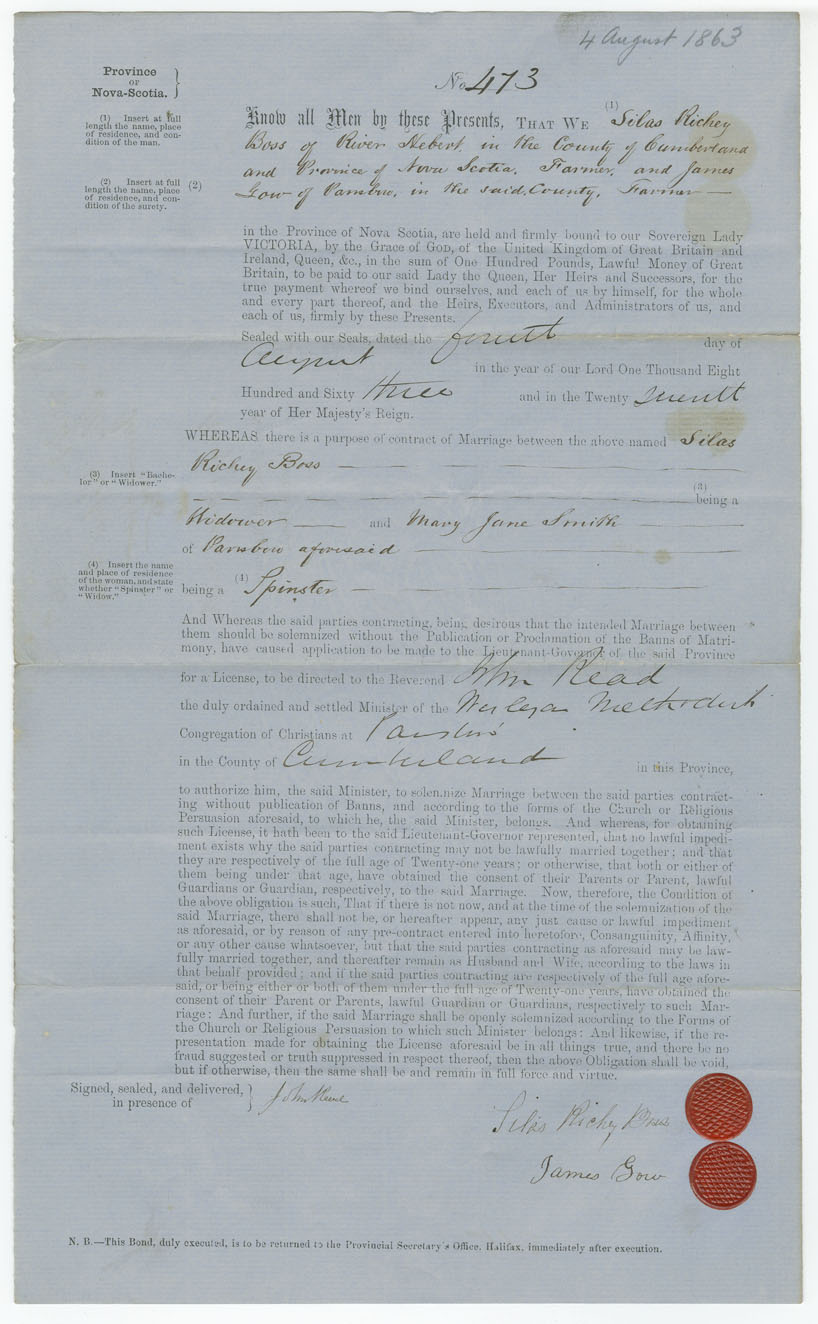 4 August 1863
Province
OF
Nova-Scotia.
No 473
(1) Insert at full
length the name, place
of residence, and con-
dition of the man.
Know all Men by these Presents, THAT WE (1) Silas Richey
Boss of River Hebert in the County of Cumberland
and Province of Nova Scotia. Farmer, and James
(2) Insert at full
length the name, place
of residence, and con-
dition of the surety.
(2) Gow of Parsboro, in the said County, Farmer
in the Province of Nova Scotia, are held and firmly bound to our Sovereign Lady
VICTORIA, by the Grace of GOD, of the United Kingdom of Great Britain and
Ireland, Queen, &c., in the sum of One Hundred Pounds, Lawful Money of Great
Britain, to be paid to our said Lady the Queen, Her Heirs and Successors, for the
true payment whereof we bind ourselves, and each of us by himself, for the whole
and every part thereof, and the Heirs, Executors, and Administrators of us, and
each of us, firmly by these Presents.
Sealed with our Seals, dated the fourth day of
August in the year of our Lord One Thousand Eight
Hundred and Sixty three and in the Twenty seventh
year of Her Majesty's Reign.
WHEREAS there is a purpose of contract of Marriage between the above named Silas
Richey Boss
(3) Insert "Bache-
lor" or "Widower."
(3)
being a
Widower and Mary Jane Smith
of Parsboro aforesaid
(4) Insert the name
and place of residence
of the woman, and state
whether "Spinster" or
"Widow."
being a (4) Spinster
And Whereas the said parties contracting, being desirous that the intended Marriage between
them should be solemnized without the Publication or Proclamation of the Banns of Matri-
mony, have caused application to be made to the Lieutenant-Governor of the said Province
for a License, to be directed to the Reverend John Read
the duly ordained and settled Minister of the Wesleyan Methodist
Congregation of Christians at Parsboro
in the County of Cumberland in this Province,
to authorize him, the said Minister, to solemnize Marriage between the said parties contract-
ing without publication of Banns, and according to the forms of the Church or Religious
Persuasion aforesaid, to which he, the said Minister, belongs. And whereas, for obtaining
such License, it hath been to the said Lieutenant-Governor represented, that no lawful impedi-
ment exists why the said parties contracting may not be lawfully married together; and that
they are respectively of the full age of Twenty-one years; or otherwise, that both or either of
them being under that age, have obtained the consent of their Parents or Parent, lawful
Guardians or Guardian, respectively, to the said Marriage. Now, therefore, the Condition of
the above obligation is such, That if there is not now, and at the time of the solemnization of the
said Marriage, there shall not be, or hereafter appear, any just cause or lawful impediment
as aforesaid, or by reason of any pre-contract entered into heretofore, Consanguinity, Affinity,
or any other cause whatsoever, but that the said parties contracting as aforesaid may be law-
fully married together, and thereafter remain as Husband and Wife, according to the laws in
that behalf provided; and if the said parties contracting are respectively of the full age afore-
said, or being either or both of them under the full age of Twenty-one years, have obtained the
consent of their Parent or Parents, lawful Guardian or Guardians, respectively to such Mar-
riage: And further, if the said Marriage shall be openly solemnized according to the Forms of
the Church or Religious Persuasion to which such Minister belongs: And likewise, if the re-
presentation made for obtaining the License aforesaid be in all things true, and there be no
fraud suggested or truth suppressed in respect thereof, then the above Obligation shall be void,
but if otherwise, then the same shall be and remain in full force and virtue.
Signed, sealed, and delivered,
in presence of
John Read
Silas Richey Boss
James Gow
N. B.—This Bond, duly executed, is to be returned to the Provincial Secretary's Office, Halifax, immediately after execution.